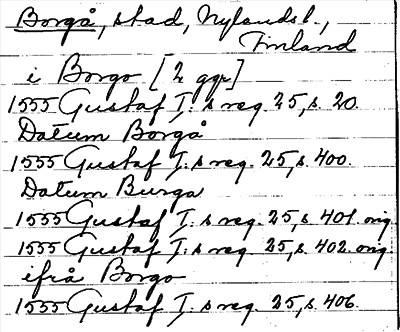 Borgå, stad, Nylandsl.,
Finland
i Borgo [2 ggr]
1555 Gustaf I:s reg. 25, s. 20.
Datum Borgå
1555 Gustaf I:s reg. 25, s. 400.
Datum Burga
1555 Gustaf I:s reg. 25, s. 401. orig.
1555 Gustaf I:s reg. 25, s. 402. orig.
ifrå Borgo
1555 Gustaf I:s reg. 25, s. 406.